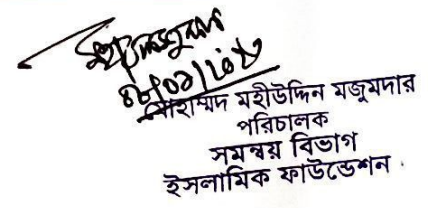 মোহাম্মদ মহীউদ্দিন মজুমদার
পরিচালক
সমন্বয় বিভাগ
ইসলামিক ফাউন্ডেশন